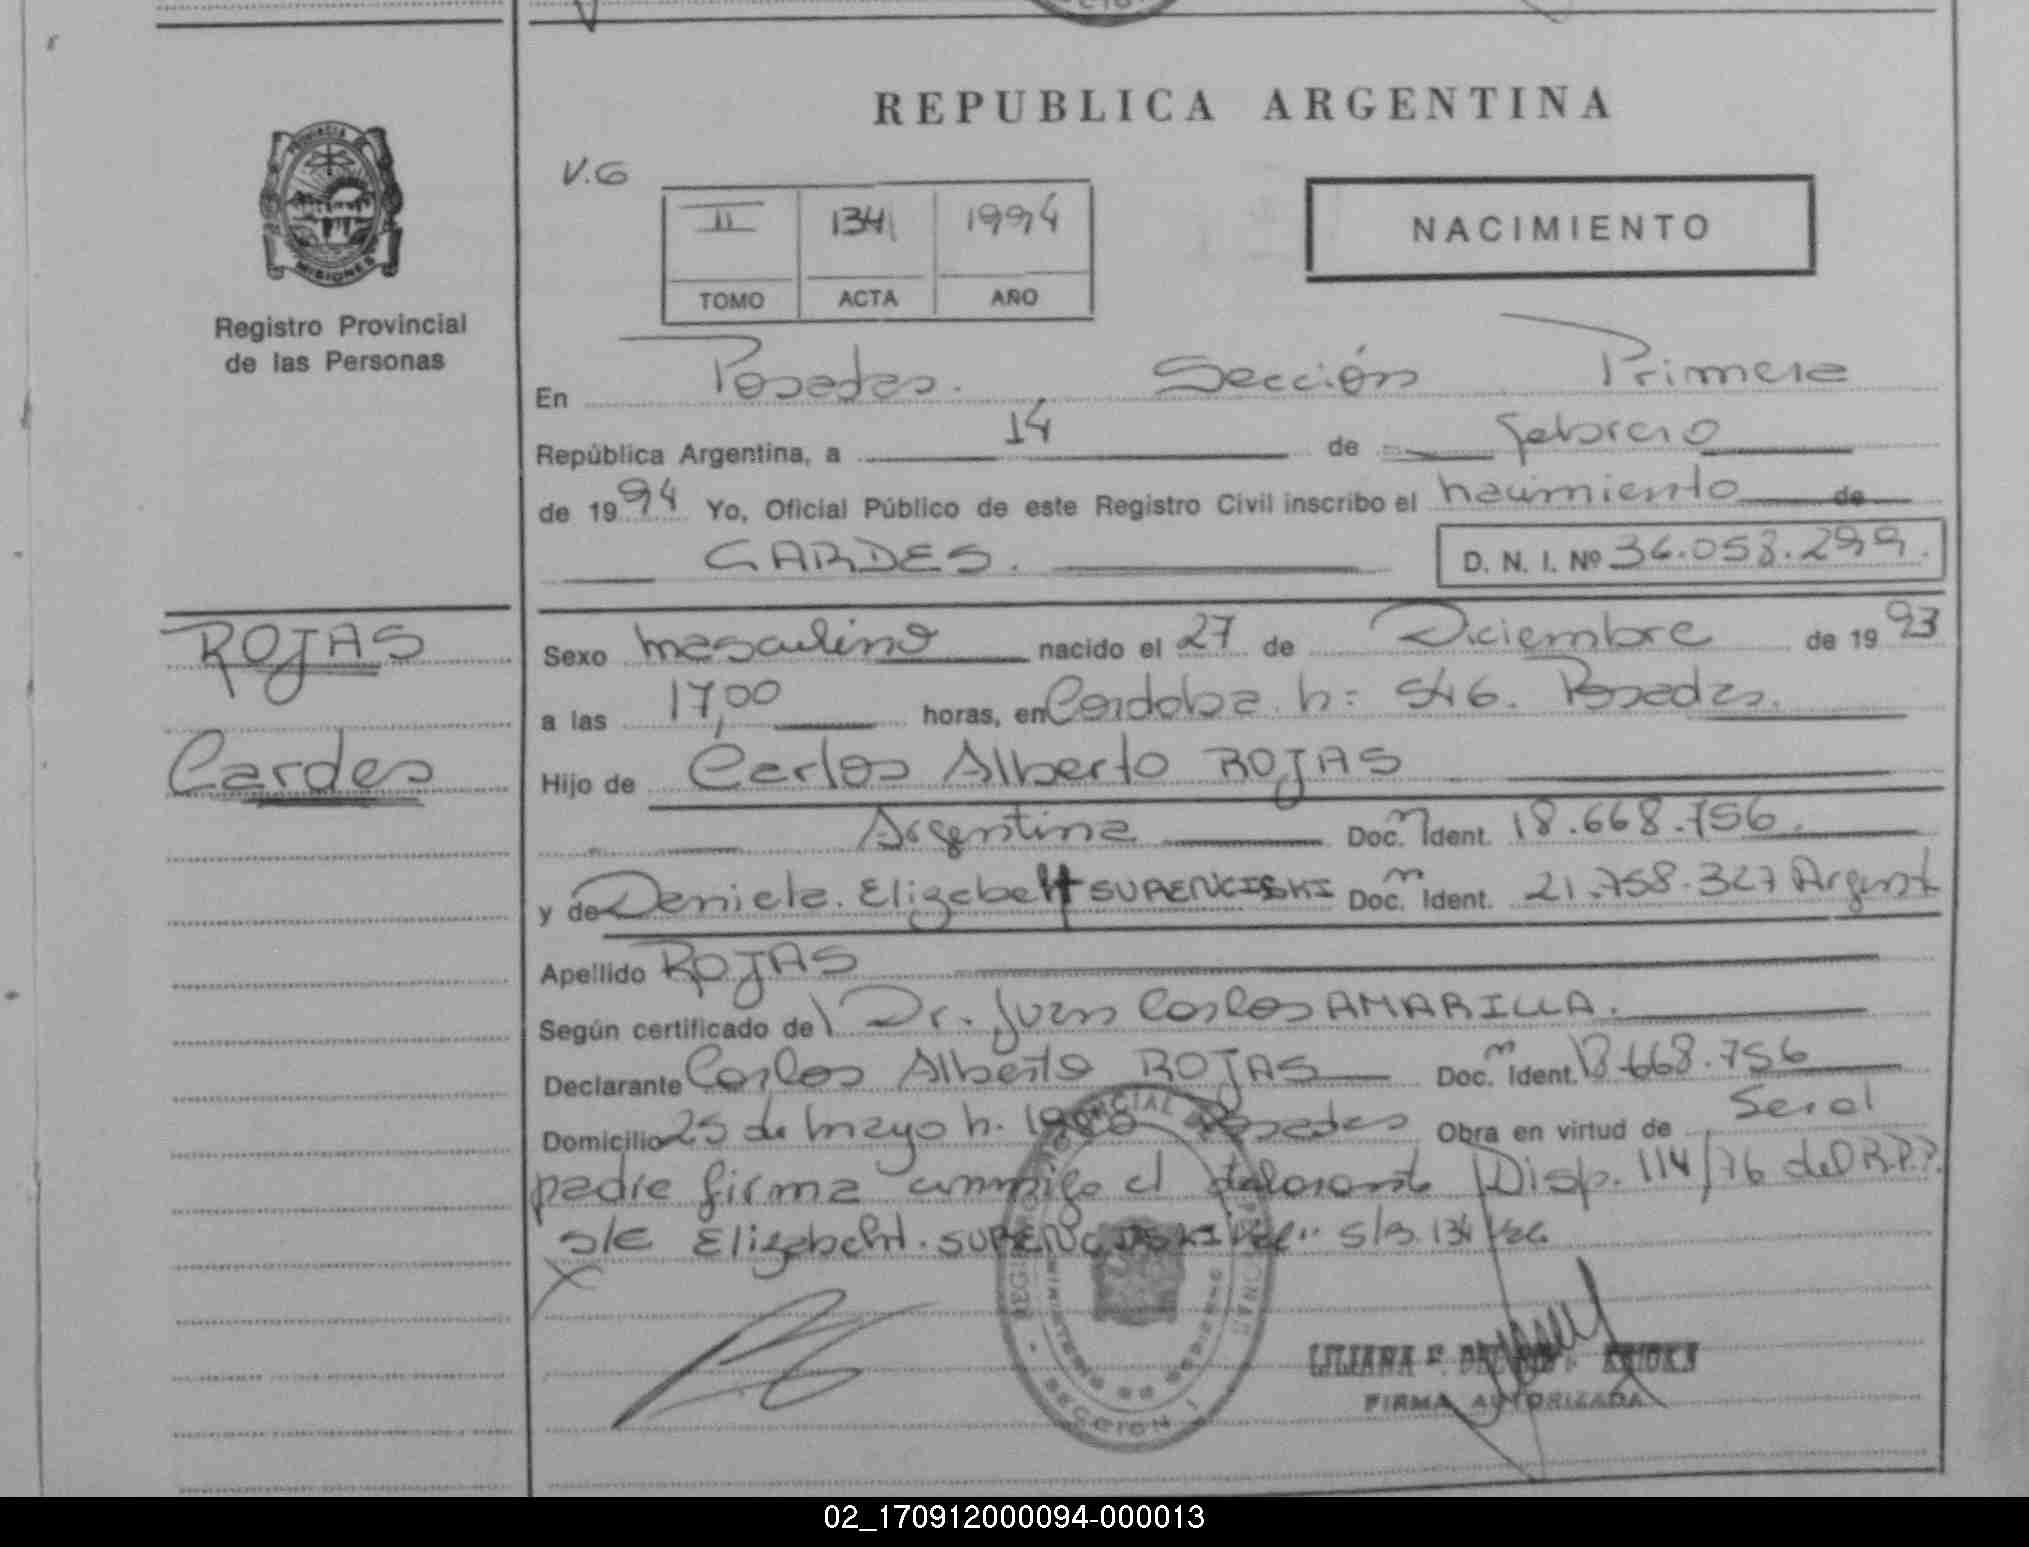 REPUBLICA ARGENTINA
V.G
II 134 1994
TOMO ACTA AÑO
NACIMIENTO
PROVINCIA
MISIONES
Registro Provincial
de las Personas
En Posadas. Sección Primera
República Argentina, a 14 de febrero
de 1994 Yo, Oficial Público de este Registro Civil inscribo el nacimiento de
CARDES.
D. N. I. Nº 36.058.299.
ROJAS
Cardes
Sexo masculino nacido el 27 de Diciembre de 1993
a las 17,00 horas, en Cordoba n: 546. Posadas.
Hijo de Carlos Alberto ROJAS
Argentina Doc. Ident. 18.668.756.
y de Daniela. Elizabeht SUPENCISKI Doc. Ident. 21.758.327 Argent
Apellido ROJAS
Según certificado de Dr. Juan Carlos AMARILLA.
Declarante Carlos Alberto ROJAS Doc. Ident. 18.668.756
Domicilio 25 de mayo n. Posadas Obra en virtud de Ser el
padre firma conmigo el declarante Disp. 114/76 del R.P.P.
s/e Elizabeht. SUPENCISKI s/b. 134
SECCION 1
LILIANA
FIRMA AUTORIZADA
02_170912000094-000013